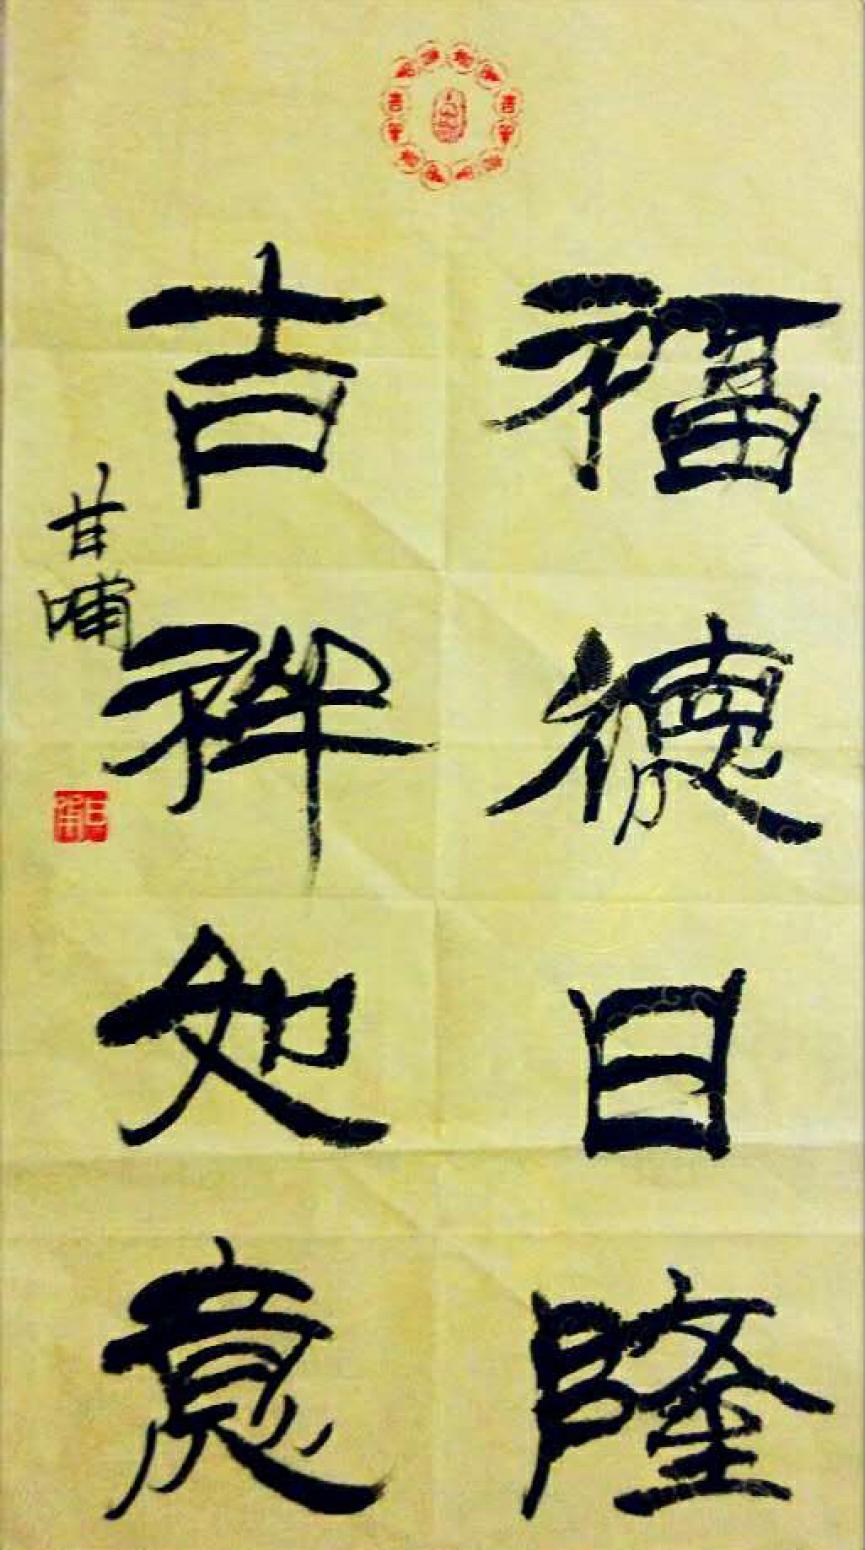 福德日隆
吉祥如意
甘哺